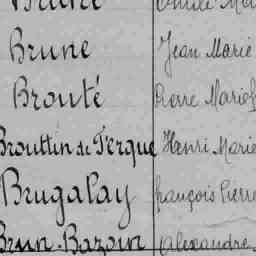 Brune Jean Marie
Brouté Pierre Marie
Brouttin de Tergue Henri Marie
Brugalay François Pierre
Brun-Bazoin Alexandre